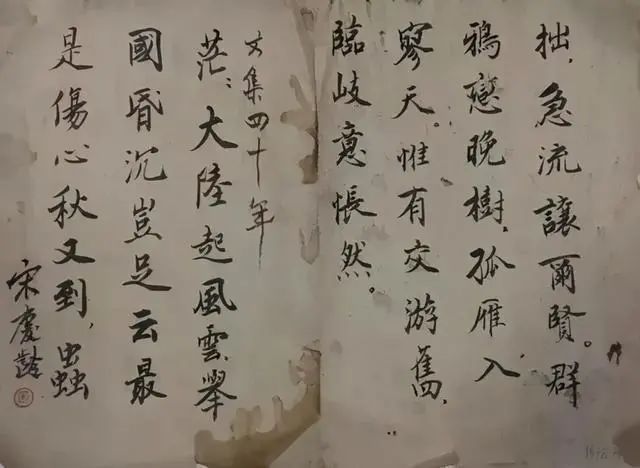 拙,急流讓爾賢。群
鴉戀晚樹,孤雁入
寥天。惟有交游舊,
臨岐意悵然。
文集四十年
茫〻大陸起風雲,舉
國昏沉豈足云最
是傷心秋又到,蟲
宋慶齡